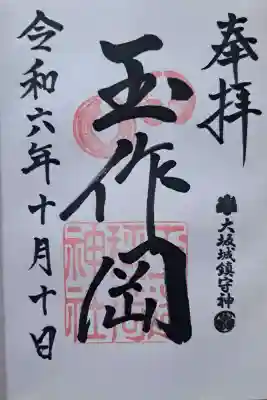 奉拝
大坂城鎮守神
玉作岡
玉造稲荷神社
令和六年十月十日